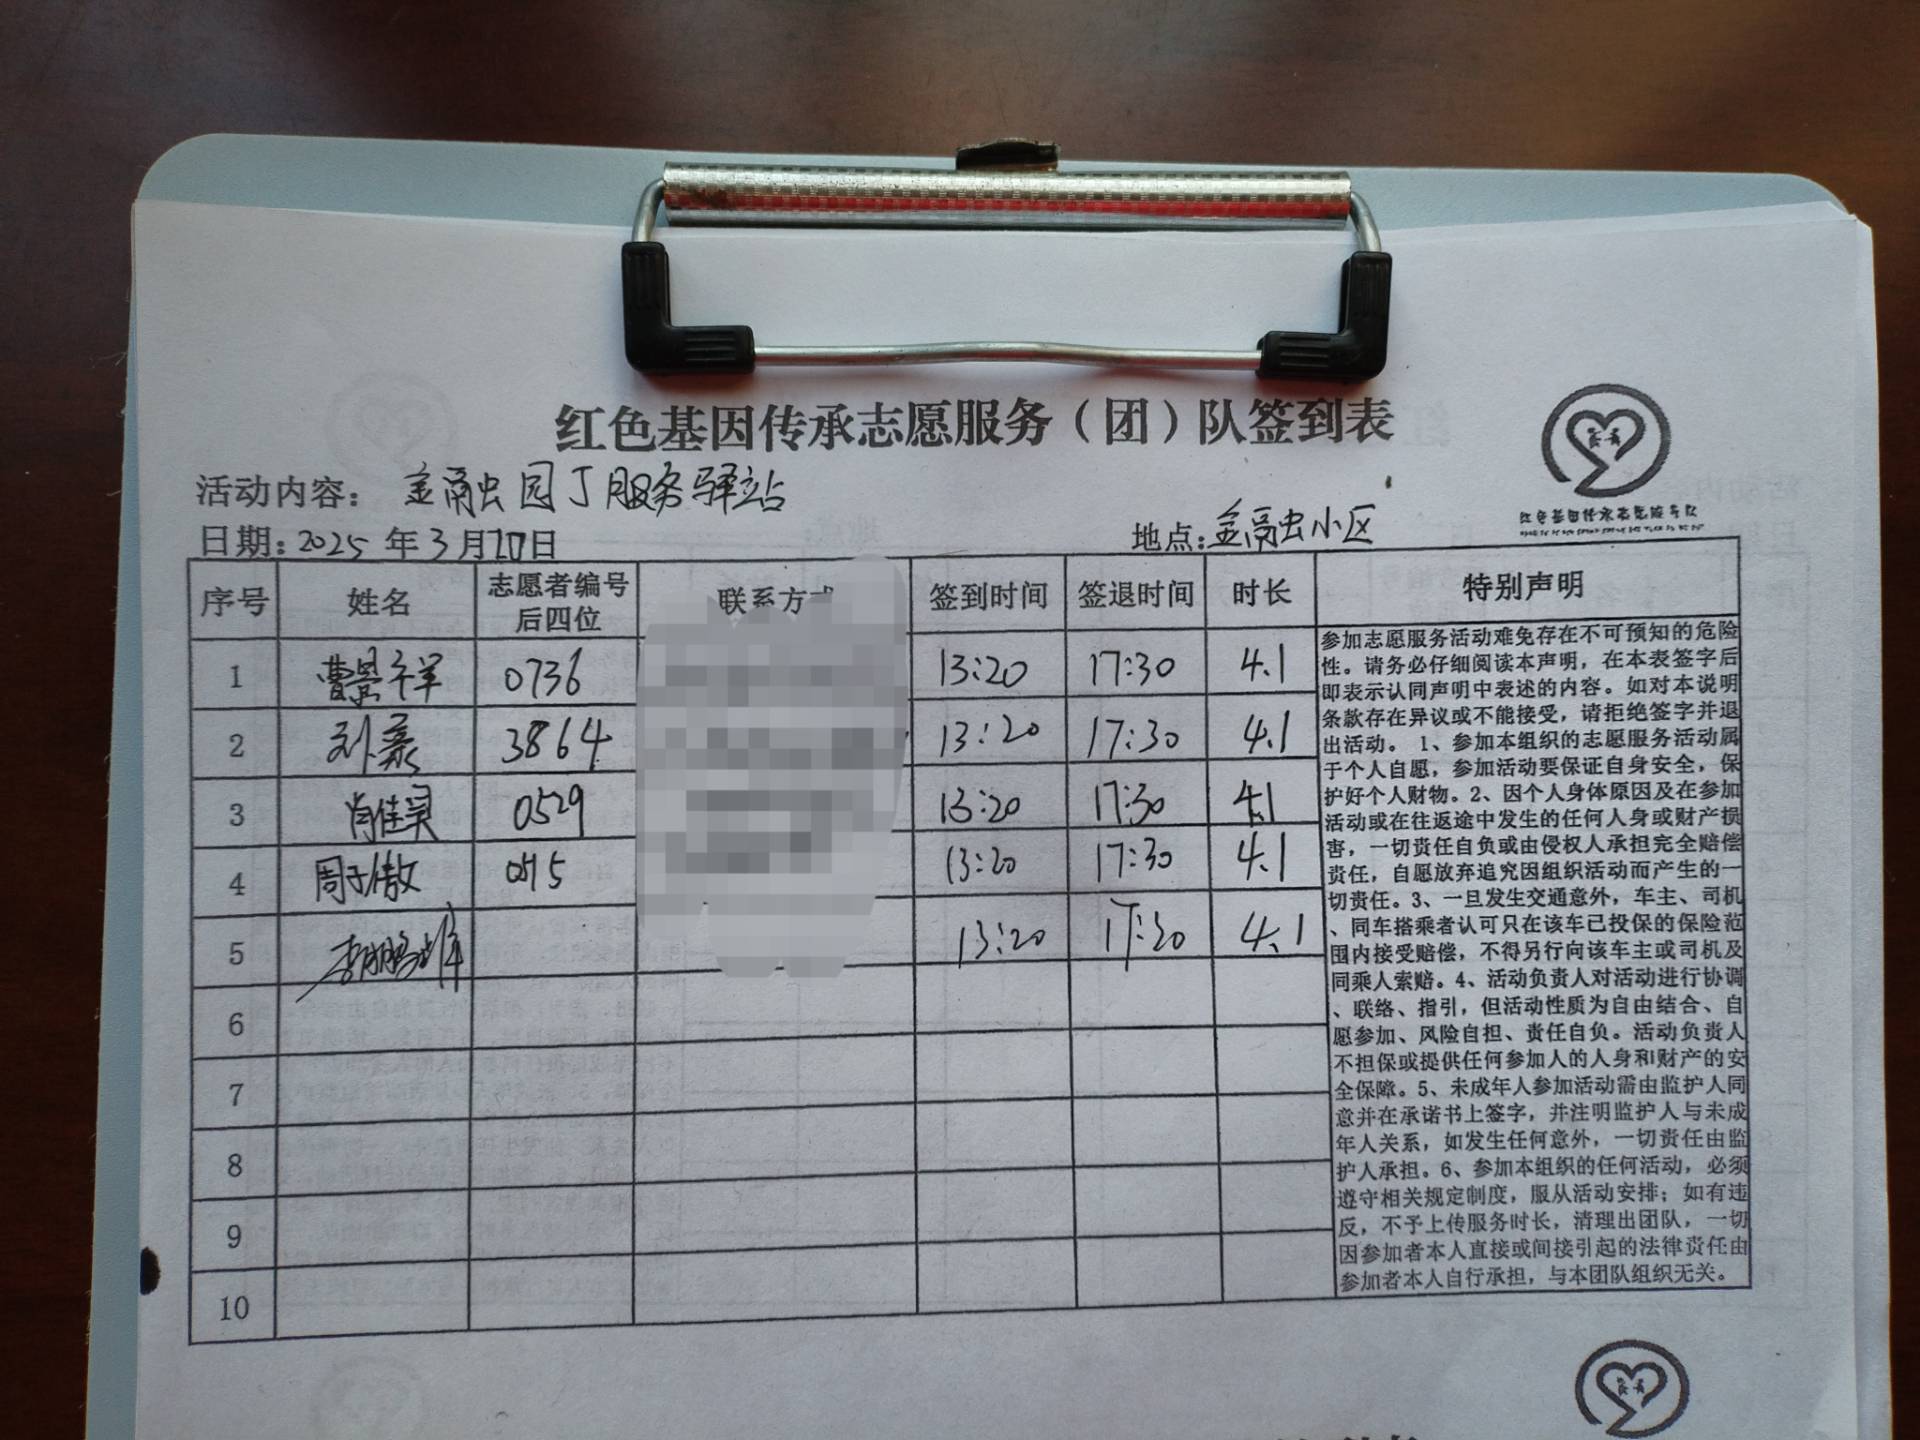 红色基因传承志愿服务（团）队签到表
活动内容： 金融园丁服务驿站
日期：2025 年 3 月 日
地点：金融小区
序号 姓名 志愿者编号后四位 联系方式 签到时间 签退时间 时长 特别声明
1 0736 13:20 17:30 4.1
2 3864 13:20 17:30 4.1
3 肖佳 0529 13:20 17:30 4.1
4 周子傲 13:20 17:30 4.1
5 李鹏 13:20 17:30 4.1
6
7
8
9
10
参加志愿服务活动难免存在不可预知的危险
性。请务必仔细阅读本声明，在本表签字后
即表示认同声明中表述的内容。如对本说明
条款存在异议或不能接受，请拒绝签字并退
出活动。 1、参加本组织的志愿服务活动属
于个人自愿，参加活动要保证自身安全，保
护好个人财物。2、因个人身体原因及在参加
活动或在往返途中发生的任何人身或财产损
害，一切责任自负或由侵权人承担完全赔偿
责任，自愿放弃追究因组织活动而产生的一
切责任。3、一旦发生交通意外，车主、司机
、同车搭乘者认可只在该车已投保的保险范
围内接受赔偿，不得另行向该车主或司机及
同乘人索赔。4、活动负责人对活动进行协调
、联络、指引，但活动性质为自由结合、自
愿参加、风险自担、责任自负。活动负责人
不担保或提供任何参加人的人身和财产的安
全保障。5、未成年人参加活动需由监护人同
意并在承诺书上签字，并注明监护人与未成
年人关系，如发生任何意外，一切责任由监
护人承担。6、参加本组织的任何活动，必须
遵守相关规定制度，服从活动安排；如有违
反，不予上传服务时长，清理出团队，一切
因参加者本人直接或间接引起的法律责任由
参加者本人自行承担，与本团队组织无关。